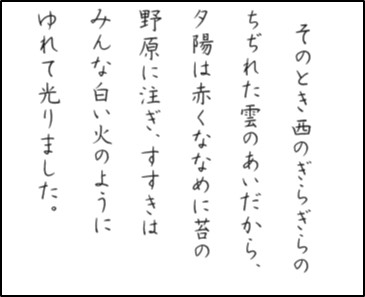 そのとき西のぎらぎらの
ちぢれた雲のあいだから、
夕陽は赤くななめに苔の
野原に注ぎ、すすきは
みんな白い火のように
ゆれて光りました。